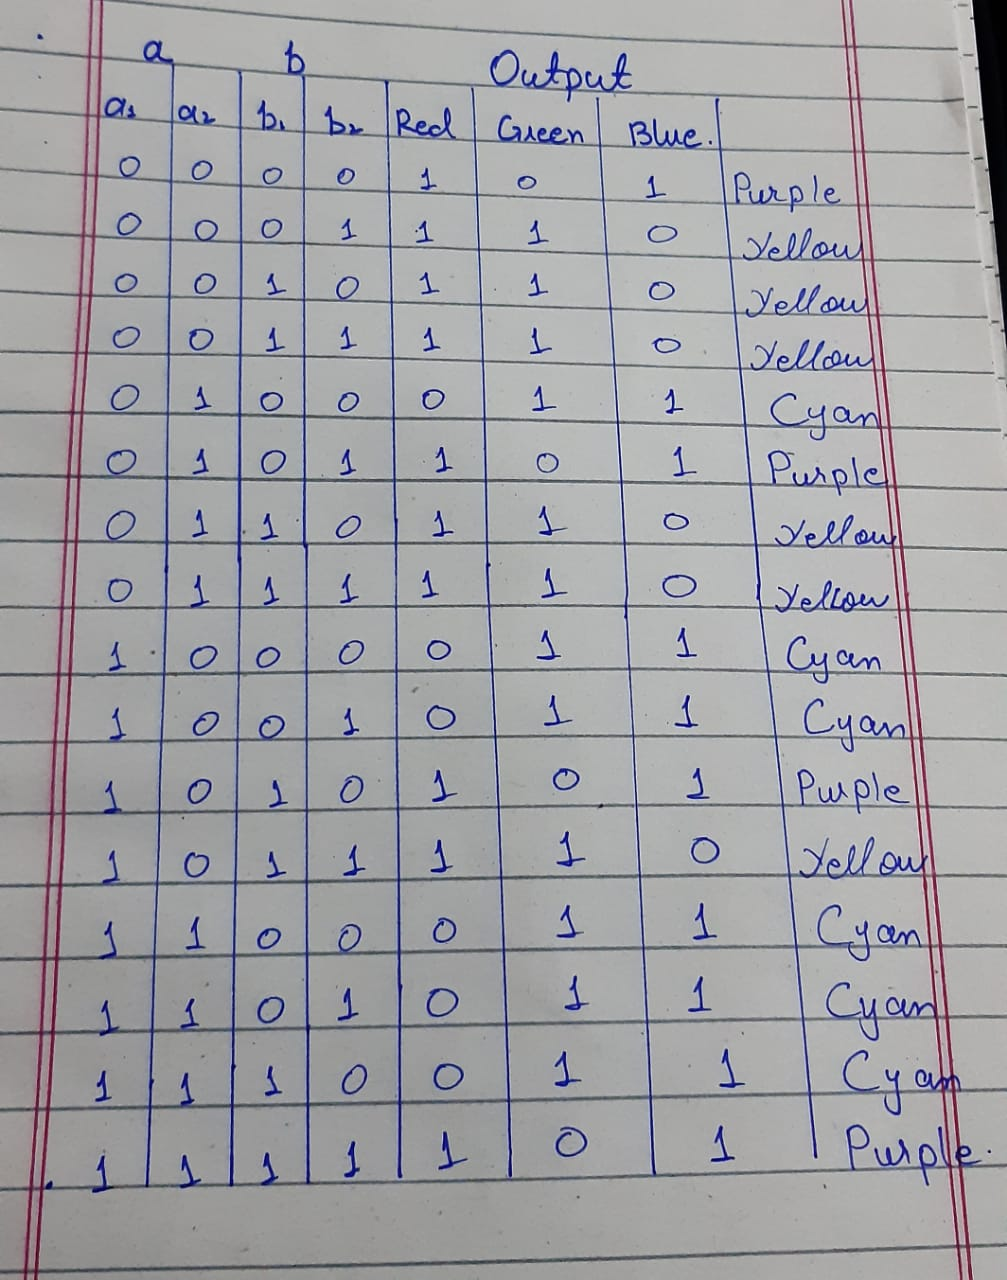 a b Output
a₁ a₂ b₁ b₂ Red Green Blue.
0 0 0 0 1 0 1 Purple
0 0 0 1 1 1 0 Yellow
0 0 1 0 1 1 0 Yellow
0 0 1 1 1 1 0 Yellow
0 1 0 0 0 1 1 Cyan
0 1 0 1 1 0 1 Purple
0 1 1 0 1 1 0 Yellow
0 1 1 1 1 1 0 Yellow
1 0 0 0 0 1 1 Cyan
1 0 0 1 0 1 1 Cyan
1 0 1 0 1 0 1 Purple
1 0 1 1 1 1 0 Yellow
1 1 0 0 0 1 1 Cyan
1 1 0 1 0 1 1 Cyan
1 1 1 0 0 1 1 Cyan
1 1 1 1 1 0 1 Purple.